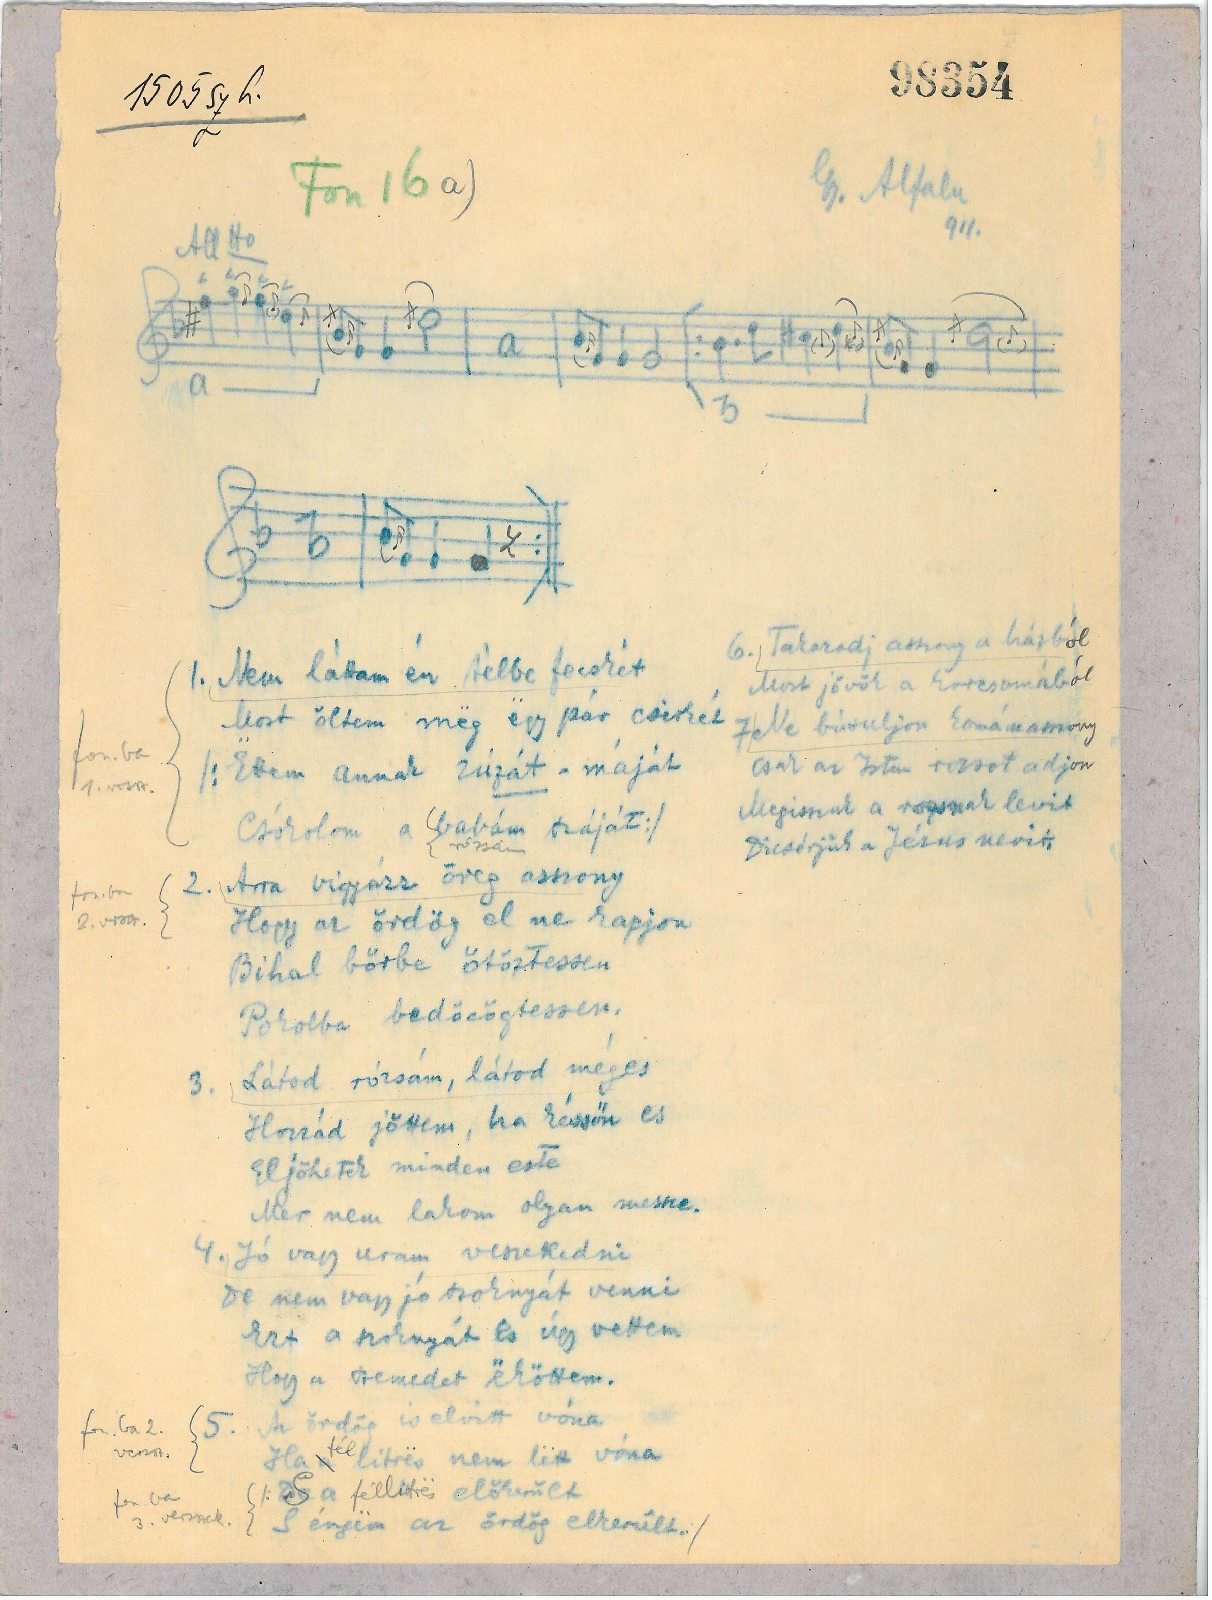 1505
98354
Fon 16 a)
Gy. Alfalu
911.
All tto
a
a
b
b
1. Nem láttam én télbe fecskét
Most öltem mëg ëgy pár csirkét
/: Ëttem annak zúzát-máját
Csókolom a babám száját :/
rózsám
fon. ba
1. versz.
2. Arra vigyázz öreg asszony
Hogy az ördög el ne kapjon
Bihal bőrbe ötöztessen
Pokolba bedöcögtessen.
fon. ba
2. versz.
3. Látod rózsám, látod méges
Hozzád jöttem, ha késsőn es
Eljöhetek minden este
Mer nem lakom olyan messze.
4. Jó vagy uram veszekedni
De nem vagy jó szoknyát venni
Ezt a szoknyát és úgy vettem
Hogy a szemedet
5. Az ördög is elvitt vóna
Ha fél litrës nem lëtt vóna
/: S a féllitrës előkerült
S éngëm az ördög elkerült. :/
fon. ba 2.
versz.
fon. ba
3. versznek.
6. Takarodj asszony a házból
Most jövök a korcsomából
7. Ne búsuljon komámasszony
Csak az Isten rozsot adjon
Megisszuk a rozsnak levit
Dicsérjük a Jézus nevit.